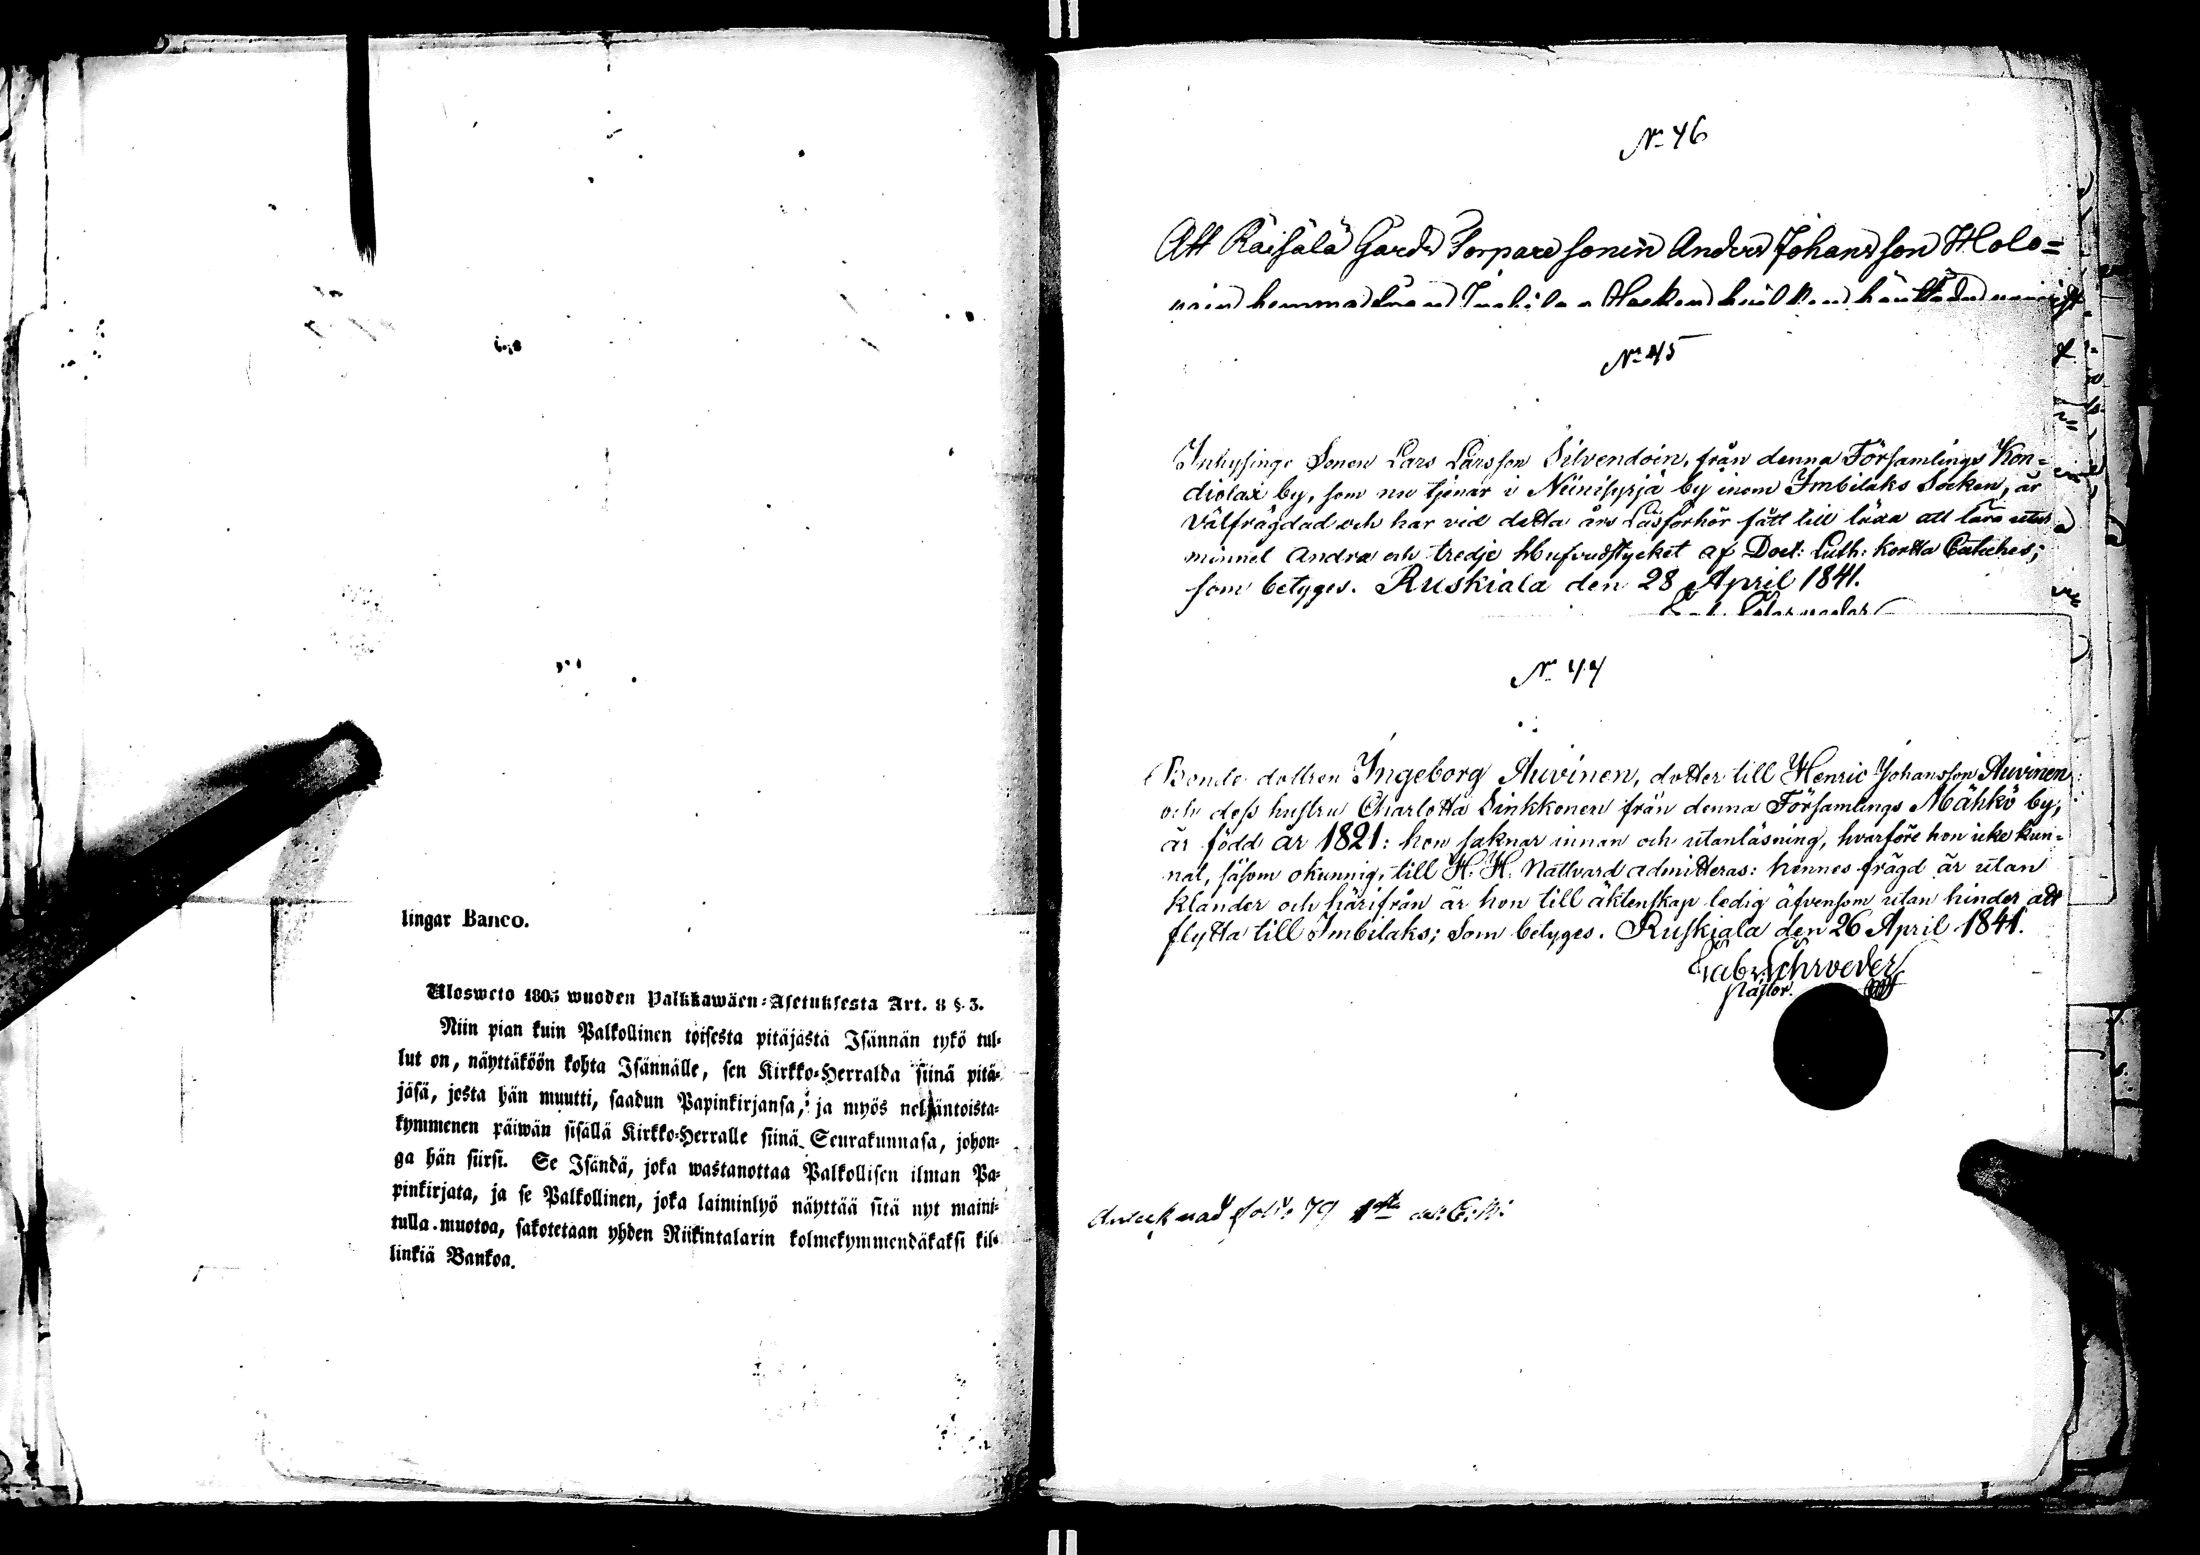 lingar Banco.
Ulosweto 1805 wuoden Palkkawäen-Asetuksesta Art. 8 §. 3.
Niin pian kuin Palkollinen toisesta pitäjästä Isännän tykö tul-
lut on, näyttäköön kohta Isännälle, sen Kirkko-Herralda siinä pitä-
jäsä, josta hän muutti, saadun Papinkirjansa, ja myös neljäntoista-
kymmenen päiwän sisällä Kirkko-Herralle siinä Seurakunnasa, johon-
ga hän siirsi. Se Isändä, joka wastanottaa Palkollisen ilman Pa-
pinkirjata, ja se Palkollinen, joka laiminlyö näyttää sitä nyt maini-
tulla muotoa, sakotetaan yhden Riikintalarin kolmekymmendäkaksi kil-
linkiä Bankoa.
No 46
Att Räisälä Gårds Torpare sonen Anders Johansson Holo=
hemma
No 45
Inhysinge Sonen Lars Larsson Silvendoin, från denna Församlings Kon-
diolax by, som nu tjenar i Niinisyrja by inom Imbilaks Socken, är
välfrägdad och har vid detta års Läsförhör fått till läxa att lära utur
minnet andra och tredje Hufvudstycket af Doct: Luth: kortta Catches;
som betyges. Ruskiala den 28 April 1841.
No 44
Bonde dottren Ingeborg Auvinen, dotter till Henric Johansson Auvinen
och dess hustru Charlotta Sinkkonen från denna Församlings Mähkö by,
är född år 1821: hon saknar innan och utanläsning, hvarföre hon icke kun-
nat, såsom okunnig, till H. H. Nattvard admitteras: hennes frägd är utan
klander och härifrån är hon till äktenskap ledig äfvensom utan hinder att
flytta till Imbilaks; Som betyges. Ruskiala den 26 April 1841.
Gabr. Schroeder
Pastor.
Antecknad folio 79